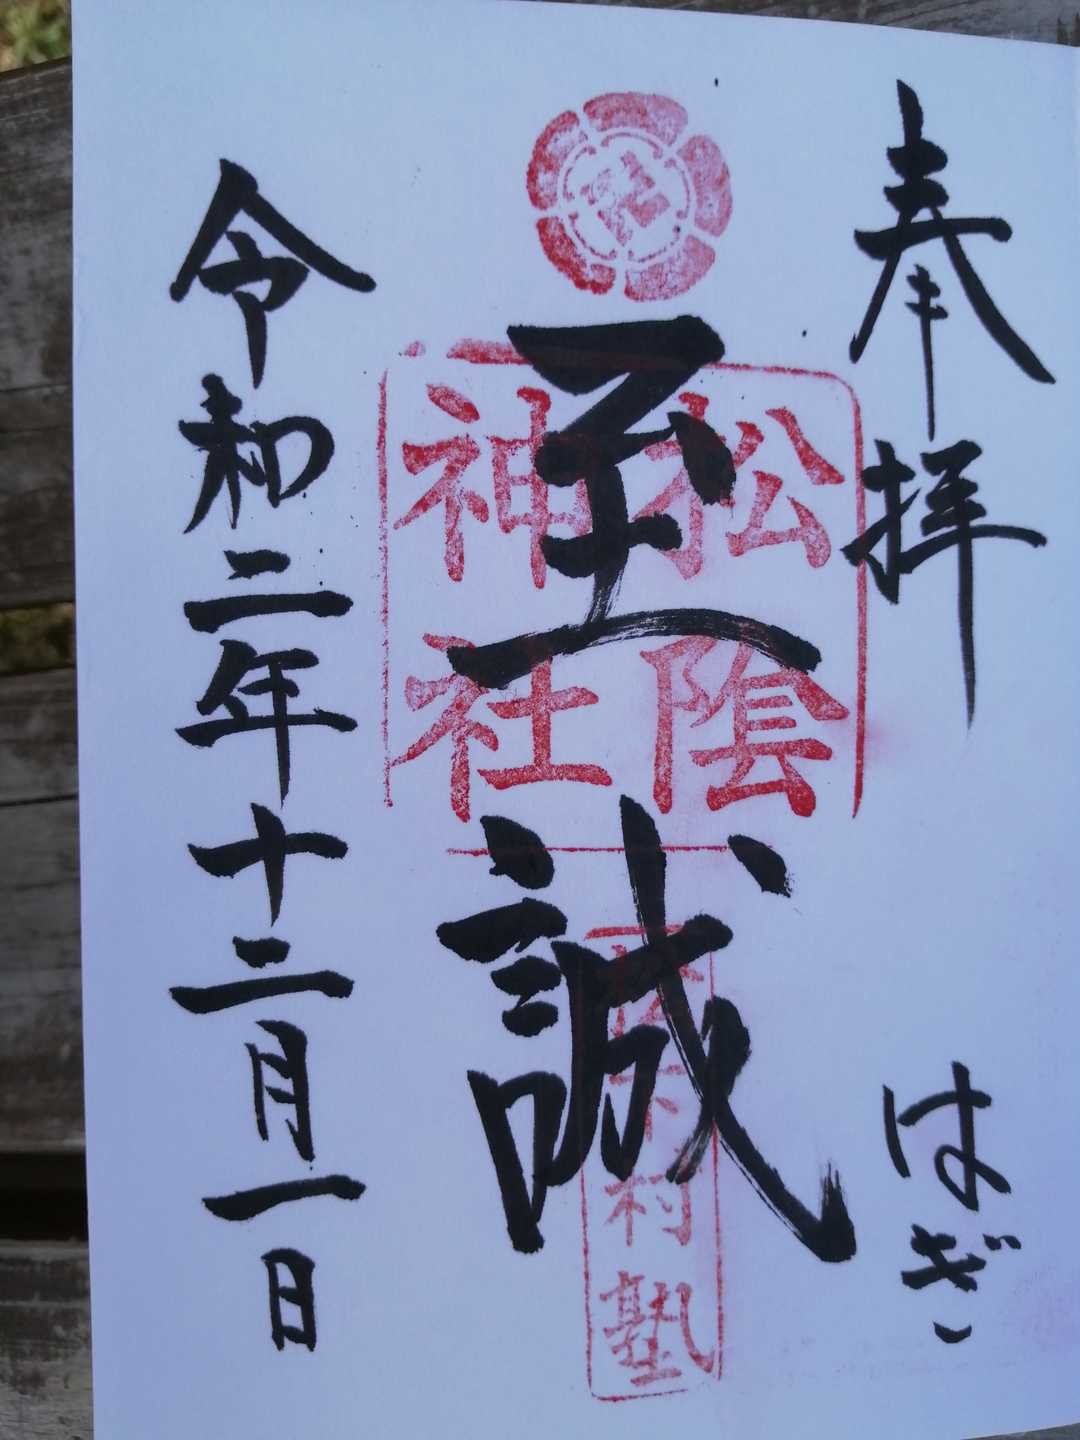 奉拝
はぎ
社
至誠
松陰
神社
松下村塾
令和二年十二月一日